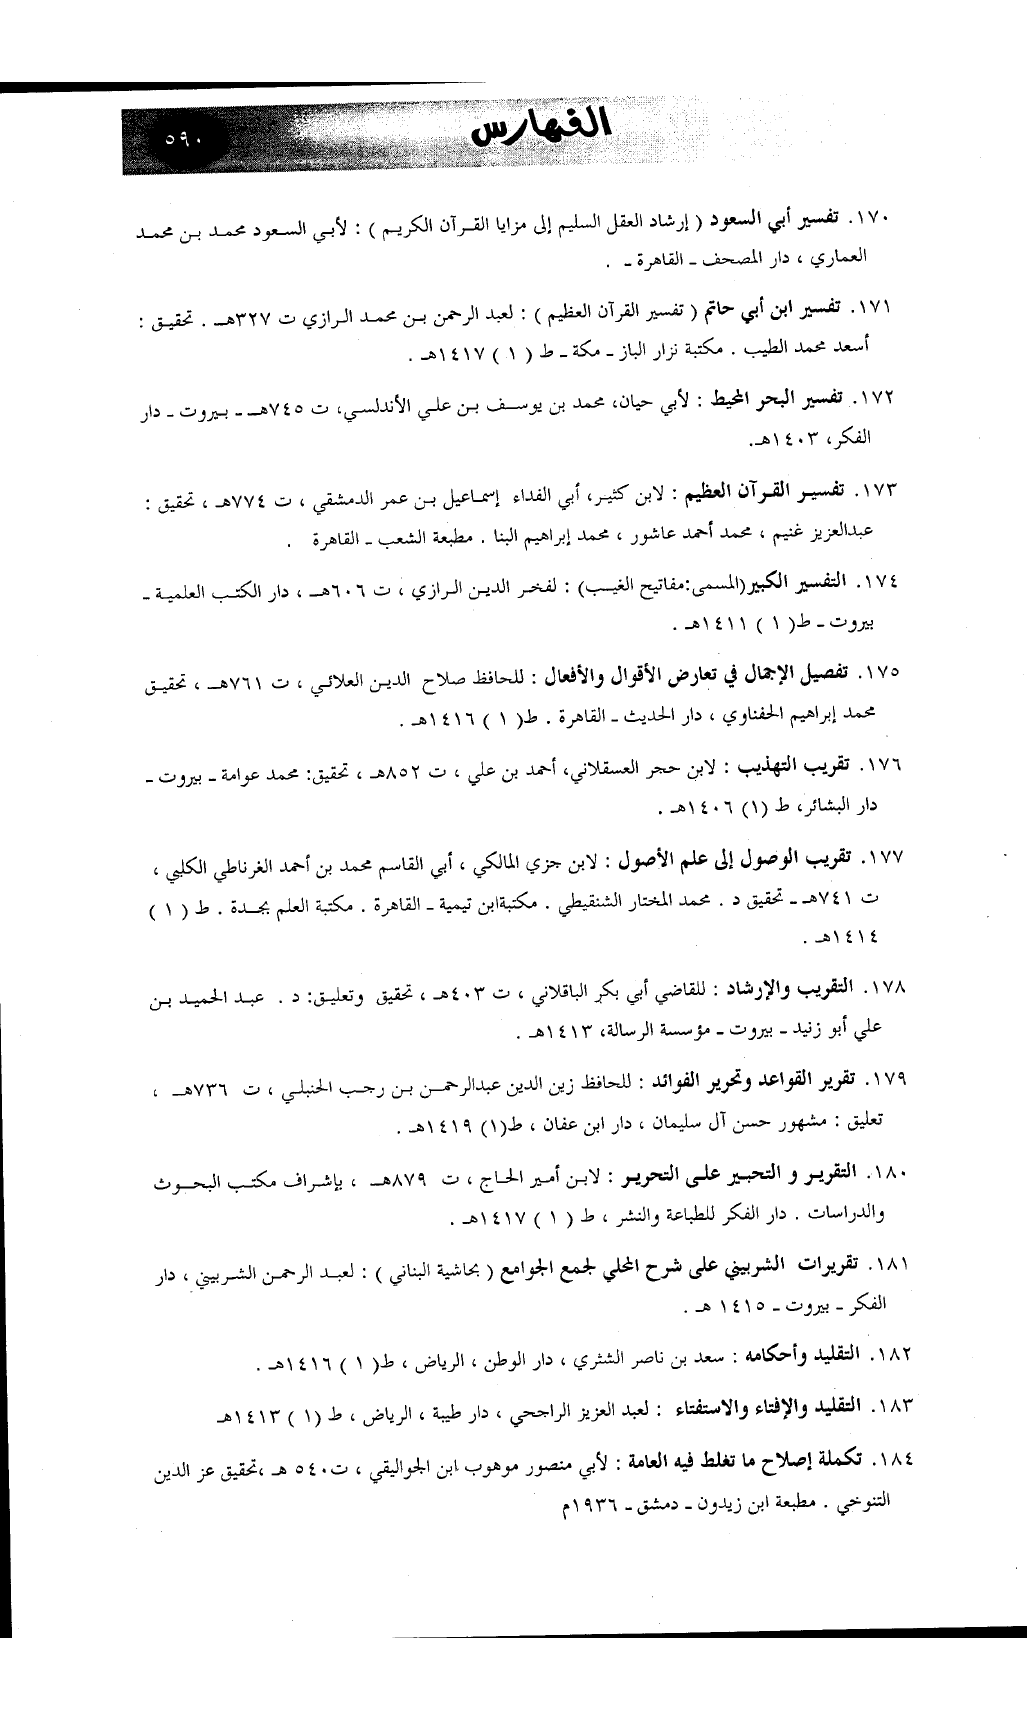 الفهارس
٥٩٠
١٧٠. تفسير أبي السعود ( إرشاد العقل السليم إلى مزايا القرآن الكريم ) : لأبي السعود محمد بن محمد
العماري ، دار المصحف ـ القاهرة ـ .
١٧١. تفسير ابن أبي حاتم ( تفسير القرآن العظيم ) : لعبد الرحمن بن محمد الرازي ت ٣٢٧هـ . تحقيق :
أسعد محمد الطيب . مكتبة نزار الباز ـ مكة ـ ط ( ١ ) ١٤١٧هـ .
١٧٢. تفسير البحر المحيط : لأبي حيان، محمد بن يوسف بن علي الأندلسي، ت ٧٤٥هـ ـ بيروت ـ دار
الفكر، ١٤٠٣هـ.
١٧٣. تفسير القرآن العظيم : لابن كثير، أبي الفداء إسماعيل بن عمر الدمشقي ، ت ٧٧٤هـ ، تحقيق :
عبدالعزيز غنيم ، محمد أحمد عاشور ، محمد إبراهيم البنا . مطبعة الشعب ـ القاهرة .
١٧٤. التفسير الكبير(المسمى:مفاتيح الغيب) : لفخر الدين الرازي ، ت ٦٠٦هـ ، دار الكتب العلمية ـ
بيروت ـ ط( ١ ) ١٤١١هـ .
١٧٥. تفصيل الإجمال في تعارض الأقوال والأفعال : للحافظ صلاح الدين العلائي ، ت ٧٦١هـ ، تحقيق
محمد إبراهيم الحفناوي ، دار الحديث ـ القاهرة . ط( ١ ) ١٤١٦هـ .
١٧٦. تقريب التهذيب : لابن حجر العسقلاني، أحمد بن علي ، ت ٨٥٢هـ ، تحقيق: محمد عوامة ـ بيروت ـ
دار البشائر، ط (١) ١٤٠٦هـ .
١٧٧. تقريب الوصول إلى علم الأصول : لابن جزي المالكي ، أبي القاسم محمد بن أحمد الغرناطي الكلبي ،
ت ٧٤١هـ ـ تحقيق د . محمد المختار الشنقيطي . مكتبةابن تيمية ـ القاهرة . مكتبة العلم بجدة . ط ( ١ )
١٤١٤هـ .
١٧٨. التقريب والإرشاد : للقاضي أبي بكر الباقلاني ، ت ٤٠٣هـ ، تحقيق وتعليق: د . عبد الحميد بن
علي أبو زنيد ـ بيروت ـ مؤسسة الرسالة، ١٤١٣هـ .
١٧٩. تقرير القواعد وتحرير الفوائد : للحافظ زين الدين عبدالرحمن بن رجب الحنبلي ، ت ٧٣٦هـ ،
تعليق : مشهور حسن آل سليمان ، دار ابن عفان ، ط(١) ١٤١٩هـ .
١٨٠. التقرير و التحبير على التحرير : لابن أمير الحاج ، ت ٨٧٩هـ ، بإشراف مكتب البحوث
والدراسات . دار الفكر للطباعة والنشر ، ط ( ١ ) ١٤١٧هـ .
١٨١. تقريرات الشربيني على شرح المحلي لجمع الجوامع ( بحاشية البناني ) : لعبد الرحمن الشربيني ، دار
الفكر ـ بيروت ـ ١٤١٥ هـ .
١٨٢. التقليد وأحكامه : سعد بن ناصر الشثري ، دار الوطن ، الرياض ، ط( ١ ) ١٤١٦هـ .
١٨٣. التقليد والإفتاء والاستفتاء : لعبد العزيز الراجحي ، دار طيبة ، الرياض ، ط (١ ) ١٤١٣هـ
١٨٤. تكملة إصلاح ما تغلط فيه العامة : لأبي منصور موهوب ابن الجواليقي ، ت٥٤٠ هـ ،تحقيق عز الدين
التنوخي . مطبعة ابن زيدون ـ دمشق ـ ١٩٣٦م